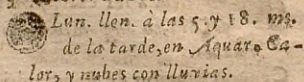 Lun. llen. à las 5. y 18. ms.
de la tarde, en Aquar, Ca-
lor, y nubes con lluvias.